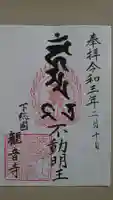 奉拝令和三年二月十日
不動明王
下総国
観音寺